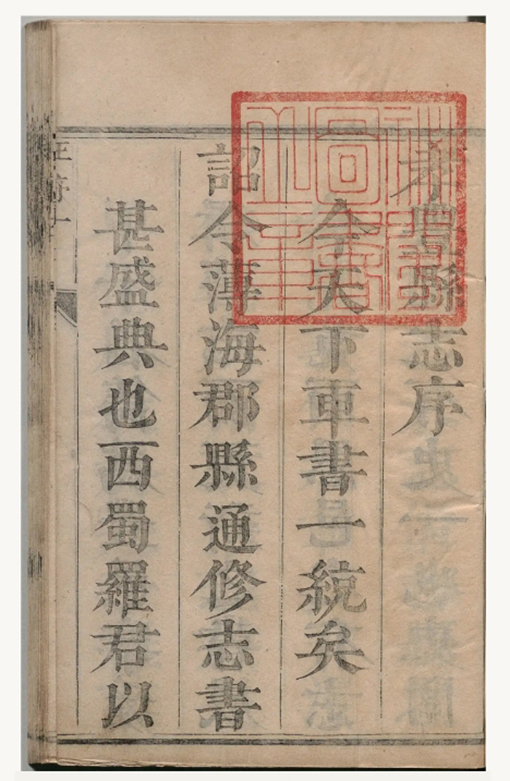 縣志序
今天下車書一統矣
詔令薄海郡縣通修志書
甚盛典也西蜀羅君以